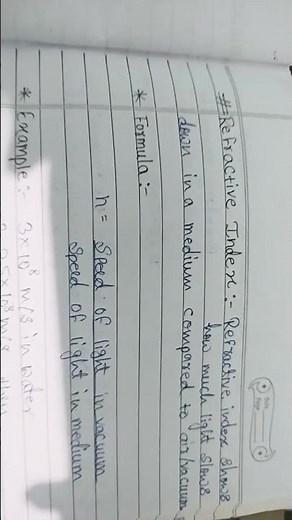 # Refractive Index :- Refractive index shows
how much light slows
down in a medium compared to air/vacuum
* Formula :-
n = Speed of light in vacuum
Speed of light in medium
* Example :- 3×10⁸ m/s in water